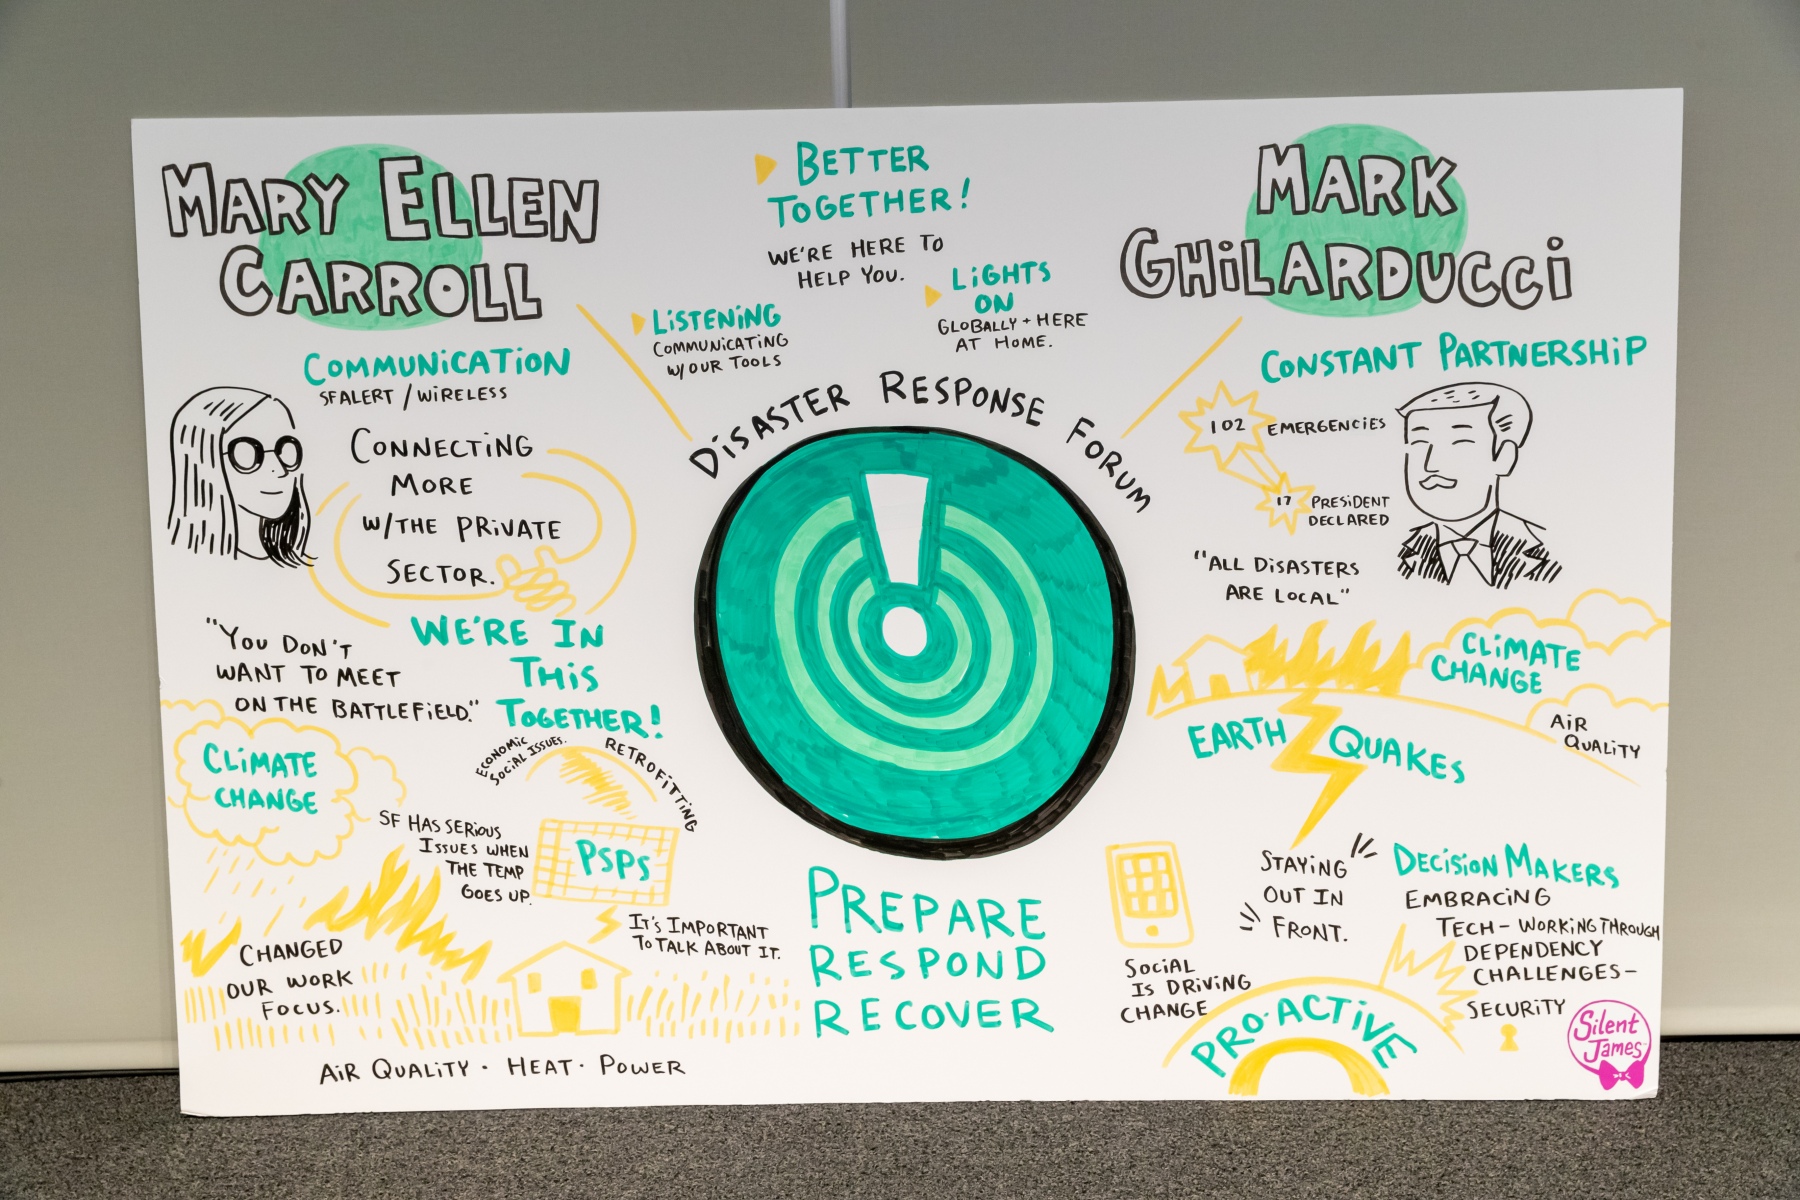 MARY ELLEN
CARROLL
COMMUNICATION
SFALERT / WIRELESS
CONNECTING
MORE
W/THE PRIVATE
SECTOR.
"YOU DON'T
WANT TO MEET
ON THE BATTLEFIELD."
WE'RE IN
THIS
TOGETHER!
CLIMATE
CHANGE
ECONOMIC
SOCIAL ISSUES.
RETROFITTING
SF HAS SERIOUS
ISSUES WHEN
THE TEMP
GOES UP.
PSPS
IT'S IMPORTANT
TO TALK ABOUT IT.
CHANGED
OUR WORK
FOCUS.
AIR QUALITY · HEAT · POWER
BETTER
TOGETHER!
WE'RE HERE TO
HELP YOU.
LISTENING
COMMUNICATING
W/OUR TOOLS
LIGHTS
ON
GLOBALLY + HERE
AT HOME.
DISASTER RESPONSE FORUM
PREPARE
RESPOND
RECOVER
MARK
GHILARDUCCI
CONSTANT PARTNERSHIP
102 EMERGENCIES
17 PRESIDENT
DECLARED
"ALL DISASTERS
ARE LOCAL"
CLIMATE
CHANGE
AIR
QUALITY
EARTH QUAKES
STAYING
OUT IN
FRONT.
SOCIAL
IS DRIVING
CHANGE
PRO-ACTIVE
DECISION MAKERS
EMBRACING
TECH - WORKING THROUGH
DEPENDENCY
CHALLENGES -
SECURITY
Silent
James